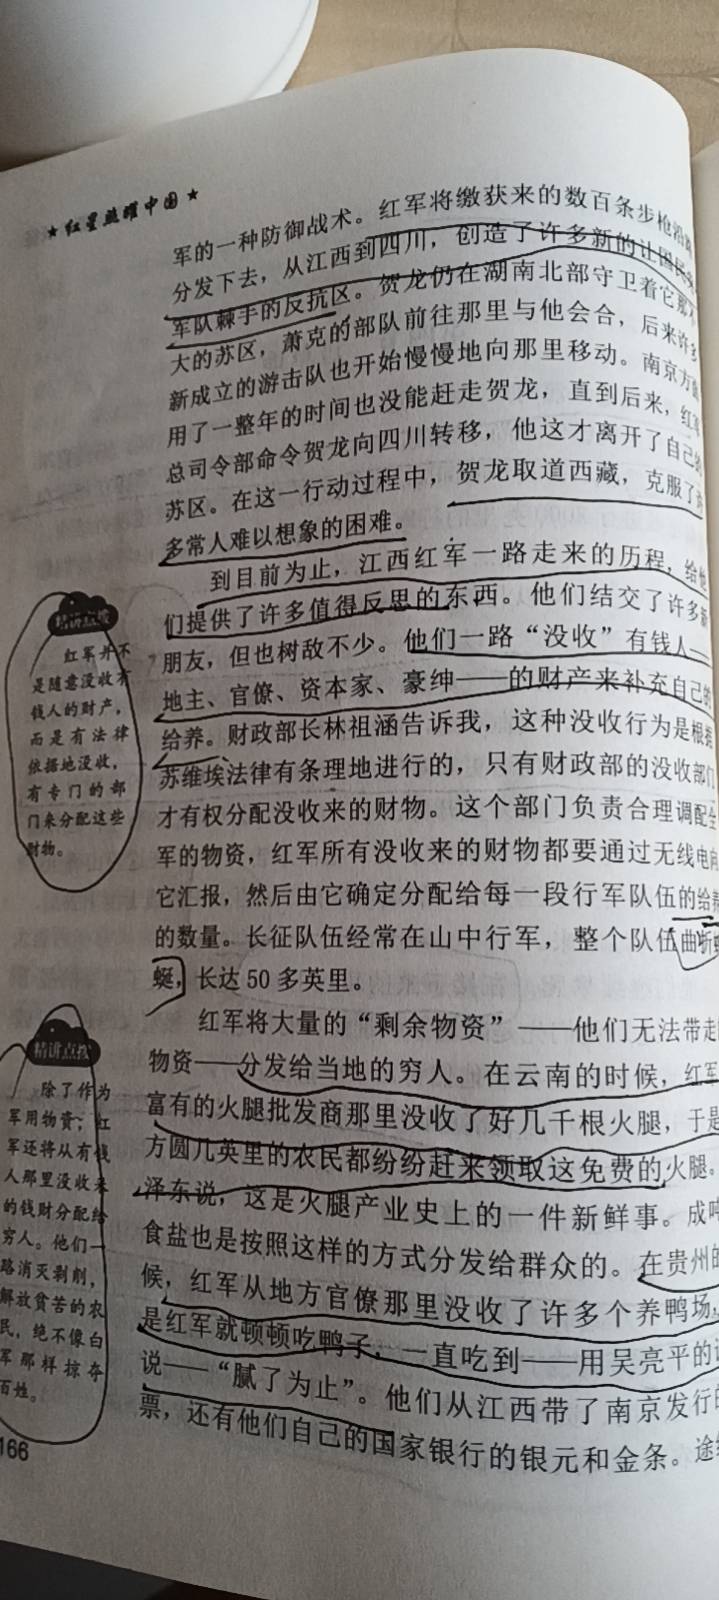 ★红星照耀中国★
军的一种防御战术。红军将缴获来的数百条步枪沿
分发下去，从江西到四川，创造了许多新的让国民
军队棘手的反抗区。贺龙仍在湖南北部守卫着它那不
大的苏区，萧克的部队前往那里与他会合，后来许多
新成立的游击队也开始慢慢地向那里移动。南京方面
用了一整年的时间也没能赶走贺龙，直到后来，红军
总司令部命令贺龙向四川转移，他这才离开了自己的
苏区。在这一行动过程中，贺龙取道西藏，克服了许
多常人难以想象的困难。
到目前为止，江西红军一路走来的历程，给他
们提供了许多值得反思的东西。他们结交了许多新
朋友，但也树敌不少。他们一路“没收”有钱人——
地主、官僚、资本家、豪绅——的财产来补充自己的
给养。财政部长林祖涵告诉我，这种没收行为是根据
苏维埃法律有条理地进行的，只有财政部的没收部门
才有权分配没收来的财物。这个部门负责合理调配全
军的物资，红军所有没收来的财物都要通过无线电向
它汇报，然后由它确定分配给每一段行军队伍的给养
的数量。长征队伍经常在山中行军，整个队伍曲折蜿
蜒，长达50多英里。
红军将大量的“剩余物资”——他们无法带走的
物资——分发给当地的穷人。在云南的时候，红军
富有的火腿批发商那里没收了好几千根火腿，于是
方圆几英里的农民都纷纷赶来领取这免费的火腿。
泽东说，这是火腿产业史上的一件新鲜事。成吨
食盐也是按照这样的方式分发给群众的。在贵州的
候，红军从地方官僚那里没收了许多个养鸭场，
是红军就顿顿吃鸭子，一直吃到——用吴亮平的话
说——“腻了为止”。他们从江西带了南京发行的
票，还有他们自己的国家银行的银元和金条。途
精讲点拨
红军并不
是随意没收有
钱人的财产，
而是有法律
依据地没收，
有专门的部
门来分配这些
财物。
精讲点拨
除了作为
军用物资，红
军还将从有钱
人那里没收来
的钱财分配给
穷人。他们一
路消灭剥削，
解放贫苦的农
民，绝不像白
军那样掠夺
百姓。
166